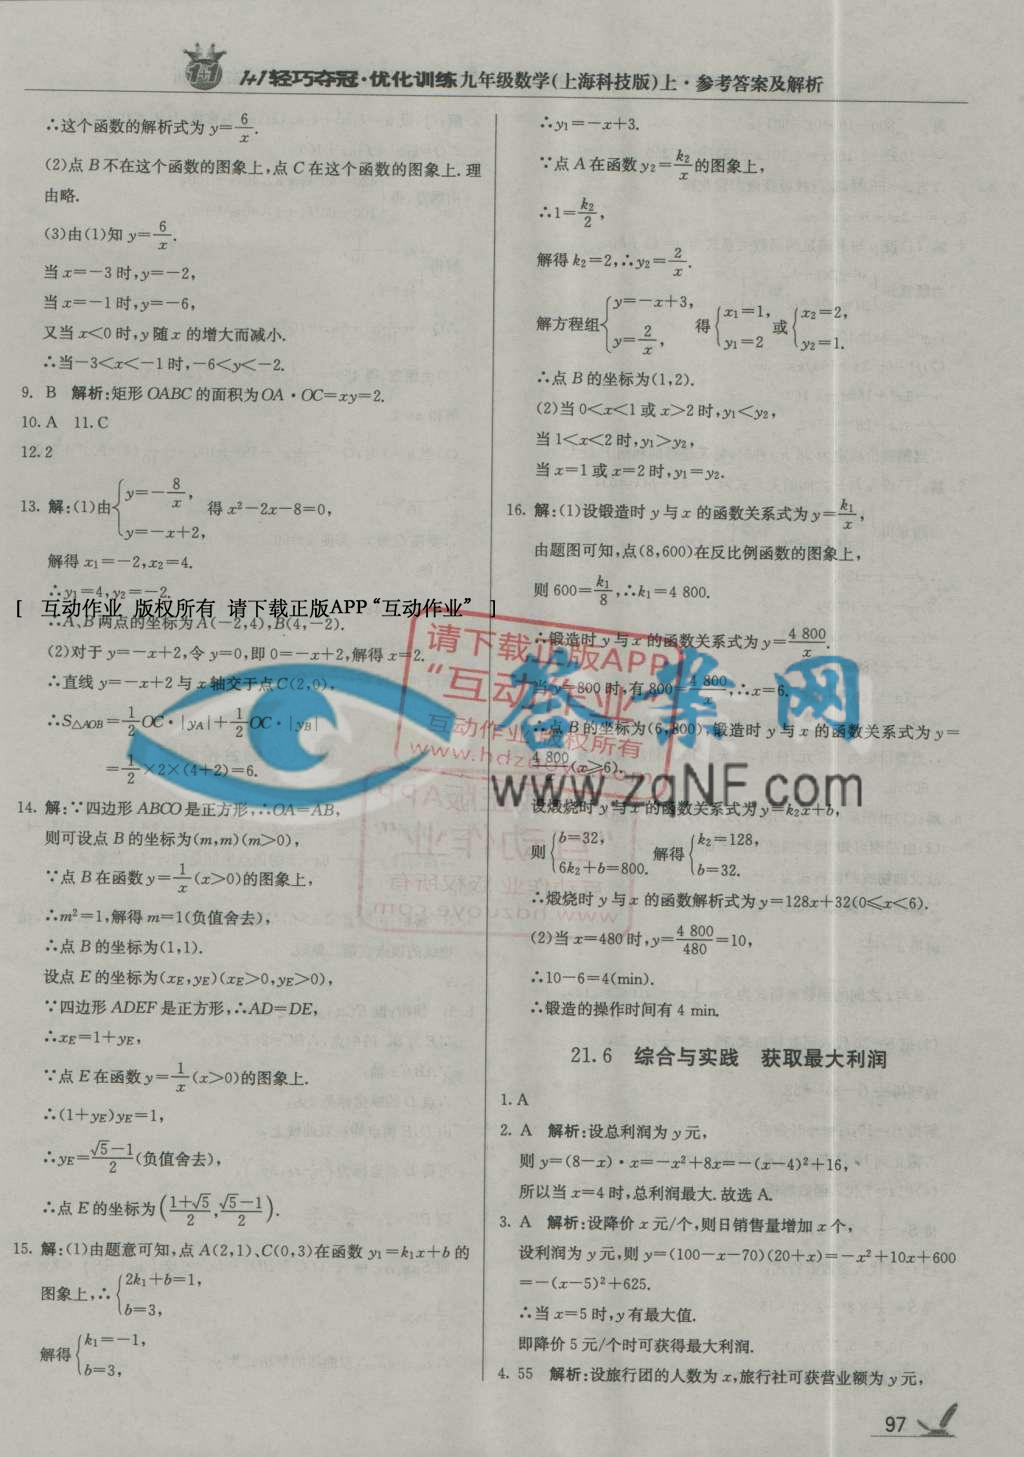 1+1轻巧夺冠·优化训练九年级数学(上海科技版)上·参考答案及解析
∴这个函数的解析式为 y=6/x.
(2)点 B 不在这个函数的图象上,点 C 在这个函数的图象上. 理
由略.
(3)由(1)知 y=6/x.
当 x=-3 时,y=-2,
当 x=-1 时,y=-6,
又当 x<0 时,y 随 x 的增大而减小.
∴当-3<x<-1 时,-6<y<-2.
9. B 解析:矩形 OABC 的面积为 OA·OC=xy=2.
10. A 11. C
12. 2
13. 解:(1)由{y=-8/x, y=-x+2, 得 x²-2x-8=0,
解得 x₁=-2,x₂=4.
∴y₁=4,y₂=-2.
[ 互动作业 版权所有 请下载正版APP“互动作业” ]
∴A、B 两点的坐标为 A(-2,4),B(4,-2).
(2)对于 y=-x+2,令 y=0,即 0=-x+2,解得 x=2.
∴直线 y=-x+2 与 x 轴交于点 C(2,0),
∴S△AOB=1/2 OC·|yA|+1/2 OC·|yB|
=1/2×2×(4+2)=6.
14. 解:∵四边形 ABCO 是正方形,∴OA=AB,
则可设点 B 的坐标为(m,m)(m>0),
∵点 B 在函数 y=1/x(x>0)的图象上,
∴m²=1,解得 m=1(负值舍去),
∴点 B 的坐标为(1,1).
设点 E 的坐标为(xE,yE)(xE>0,yE>0),
∵四边形 ADEF 是正方形,∴AD=DE,
∴xE=1+yE,
∵点 E 在函数 y=1/x(x>0)的图象上.
∴(1+yE)yE=1,
∴yE=(√5-1)/2(负值舍去),
∴点 E 的坐标为((1+√5)/2,(√5-1)/2).
15. 解:(1)由题意可知,点 A(2,1)、C(0,3)在函数 y₁=k₁x+b 的
图象上,∴{2k₁+b=1, b=3,
解得{k₁=-1, b=3,
∴y₁=-x+3.
∵点 A 在函数 y₂=k₂/x 的图象上,
∴1=k₂/2,
解得 k₂=2,∴y₂=2/x.
解方程组{y=-x+3, y=2/x, 得{x₁=1, y₁=2 或{x₂=2, y₂=1.
∴点 B 的坐标为(1,2).
(2)当 0<x<1 或 x>2 时,y₁<y₂,
当 1<x<2 时,y₁>y₂,
当 x=1 或 x=2 时,y₁=y₂.
16. 解:(1)设锻造时 y 与 x 的函数关系式为 y=k₁/x,
由题图可知,点(8,600)在反比例函数的图象上,
则 600=k₁/8,∴k₁=4 800.
∴锻造时 y 与 x 的函数关系式为 y=4 800/x.
当 y=800 时,有 800=4 800/x,∴x=6.
∴点 B 的坐标为(6,800),锻造时 y 与 x 的函数关系式为 y=
4 800/x(x≥6).
设煅烧时 y 与 x 的函数关系式为 y=k₂x+b,
则{b=32, 6k₂+b=800. 解得{k₂=128, b=32.
∴煅烧时 y 与 x 的函数解析式为 y=128x+32(0≤x<6).
(2)当 x=480 时,y=4 800/480=10,
∴10-6=4(min).
∴锻造的操作时间有 4 min.
21.6 综合与实践 获取最大利润
1. A
2. A 解析:设总利润为 y 元,
则 y=(8-x)·x=-x²+8x=-(x-4)²+16,
所以当 x=4 时,总利润最大. 故选 A.
3. A 解析:设降价 x 元/个,则日销售量增加 x 个,
设利润为 y 元,则 y=(100-x-70)(20+x)=-x²+10x+600
=-(x-5)²+625.
∴当 x=5 时,y 有最大值.
即降价 5 元/个时可获得最大利润.
4. 55 解析:设旅行团的人数为 x,旅行社可获营业额为 y 元,
97
请下载正版APP
“互动作业”
互动作业 版权所有
www.hdzuoye.com
答案网
www.zqNF.com